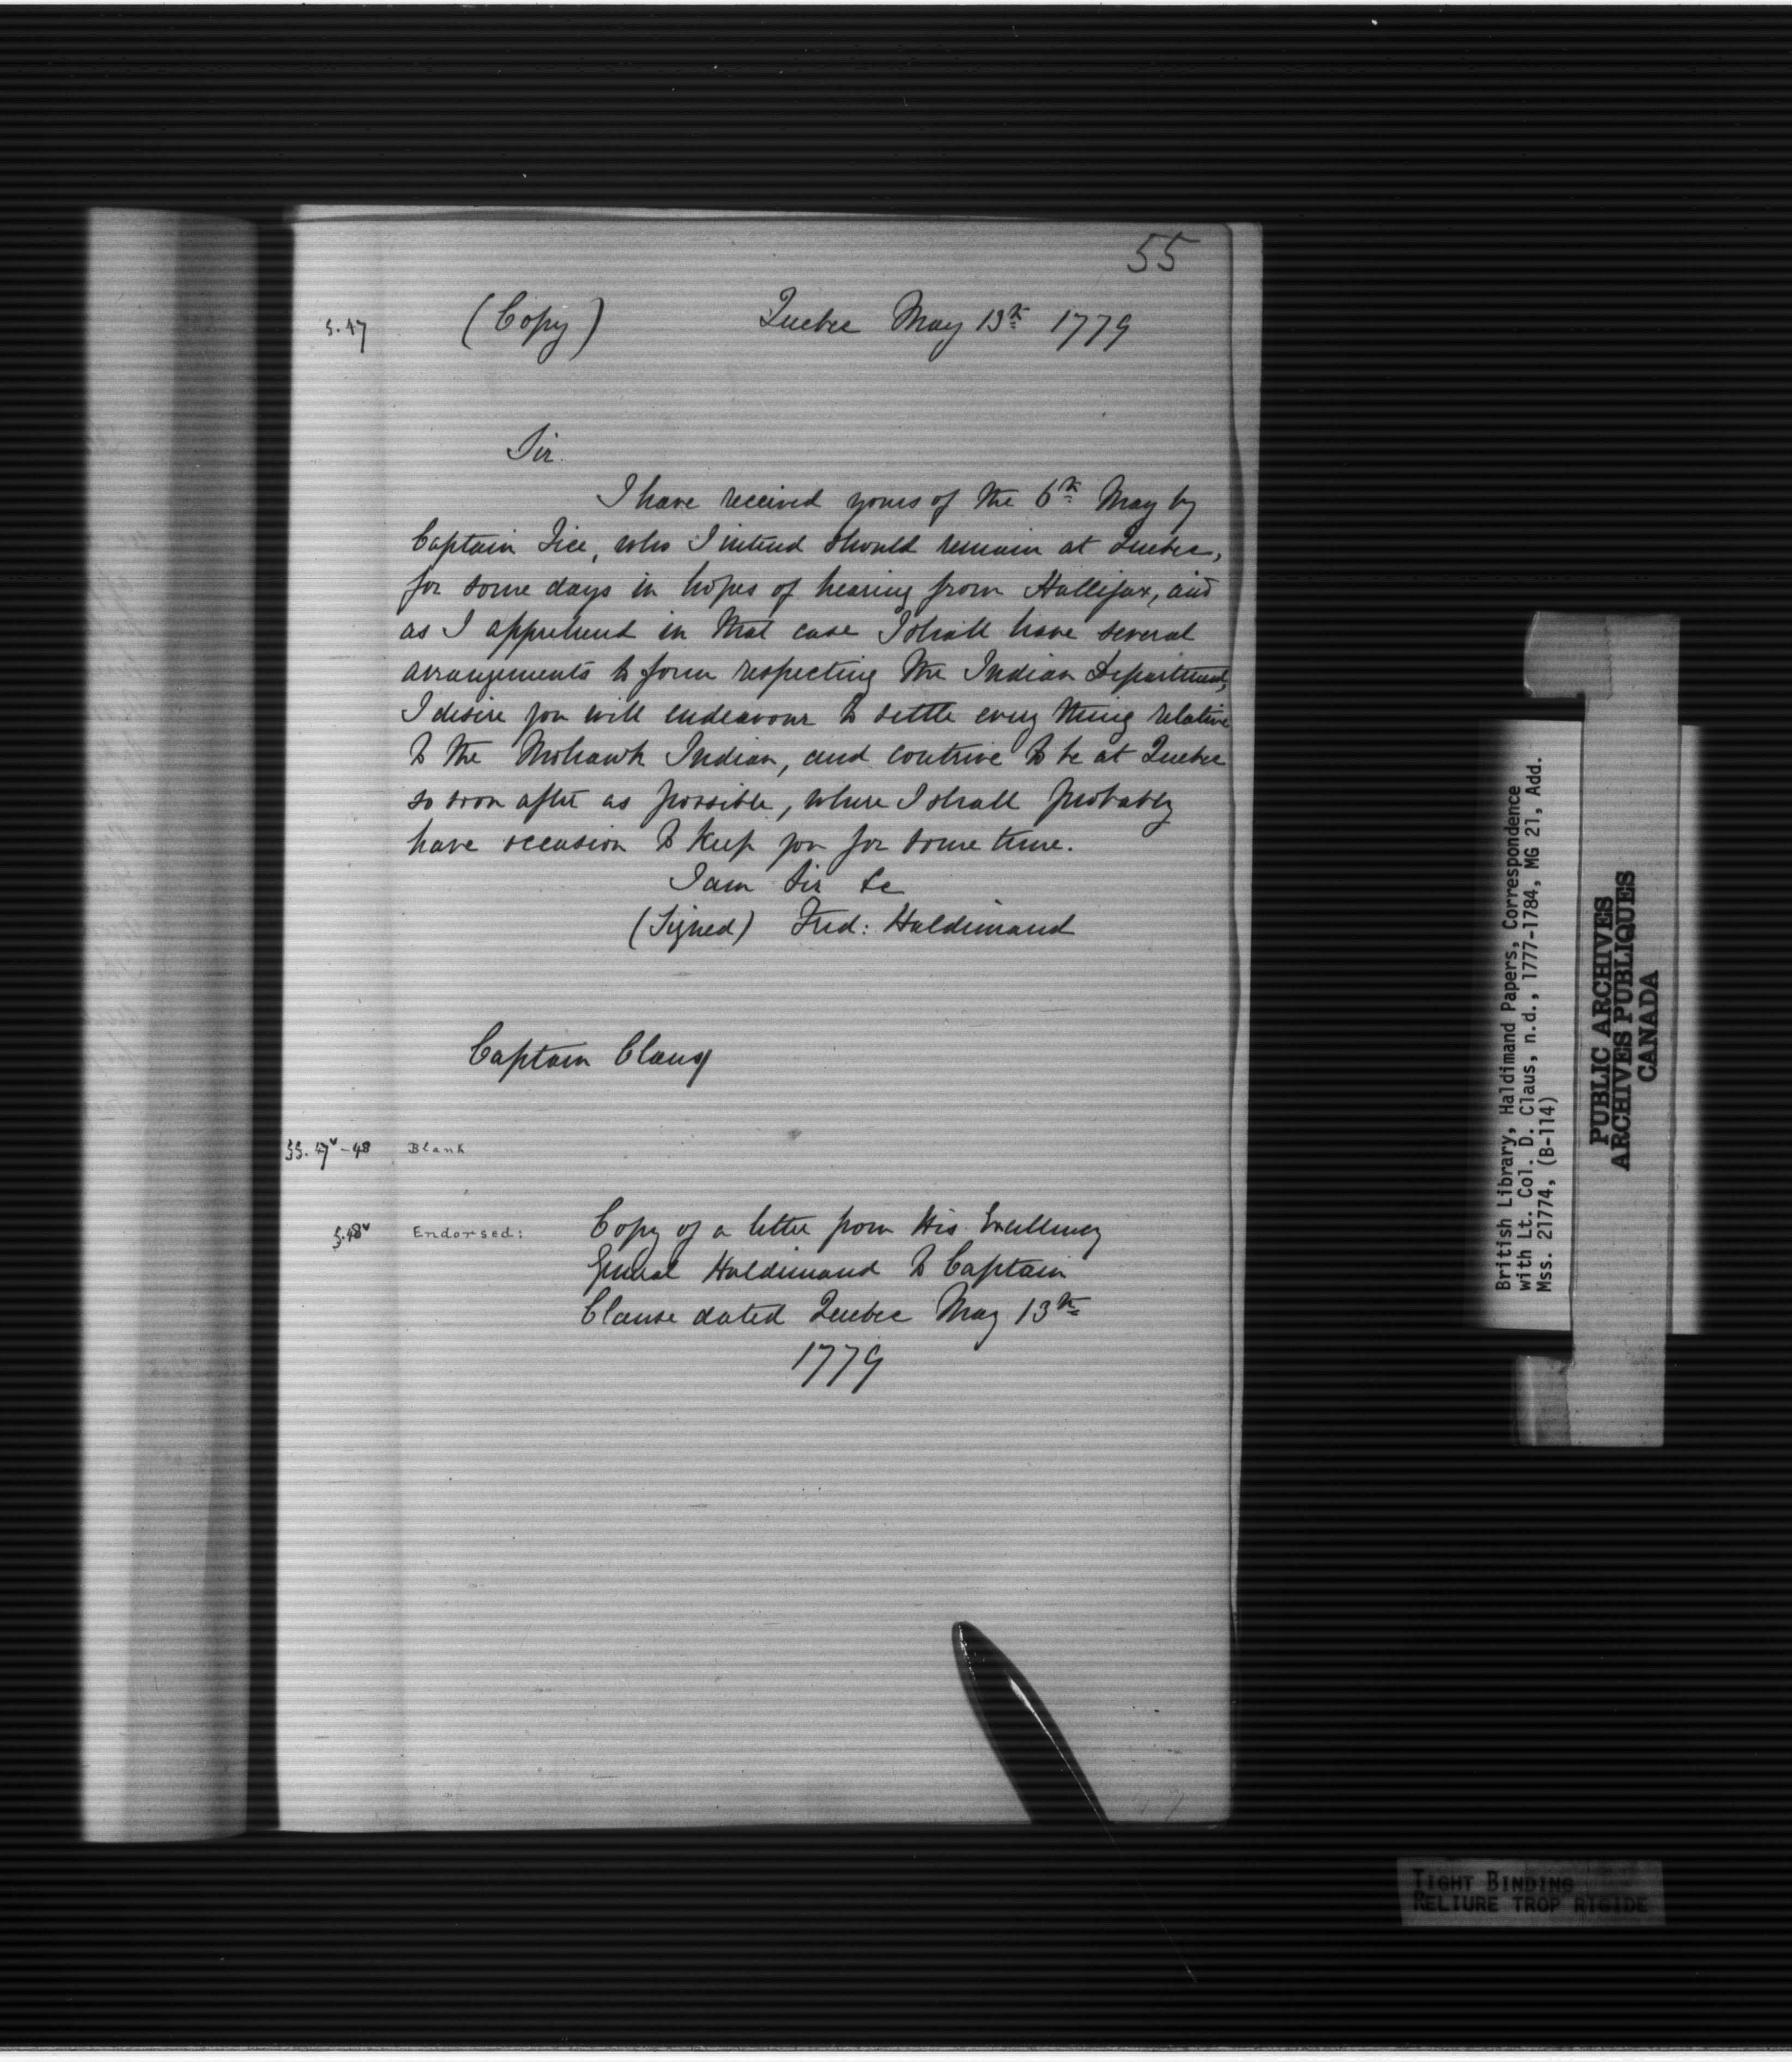 55
f. 47 (Copy) Quebec May 13th 1779
Sir.
I have received yours of the 6th May by
Captain Tice, who I intend should remain at Quebec,
for some days in hopes of hearing from Hallifax, and
as I apprehend in that case I shall have several
arrangements to form respecting the Indian Department,
I desire you will endeavour to settle every thing relative
to the Mohawk Indian, and contrive to be at Quebec
so soon after as possible, where I shall probably
have occasion to keep you for some time.
I am Sir &c
(Signed) Fred: Haldimand
Captain Claus
ff. 47v-48 Blank
f.48v Endorsed: Copy of a letter from His Excellency
General Haldimand to Captain
Clause dated Quebec May 13th
1779
British Library, Haldimand Papers, Correspondence
with Lt. Col. D. Claus, n.d., 1777-1784, MG 21, Add.
Mss. 21774, (B-114)
PUBLIC ARCHIVES
ARCHIVES PUBLIQUES
CANADA
TIGHT BINDING
RELIURE TROP RIGIDE